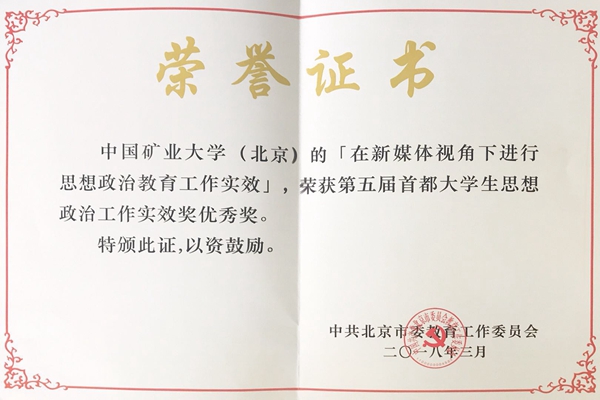 荣誉证书
中国矿业大学（北京）的「在新媒体视角下进行
思想政治教育工作实效」，荣获第五届首都大学生思想
政治工作实效奖优秀奖。
特颁此证,以资鼓励。
中共北京市委教育工作委员会
二〇一八年三月